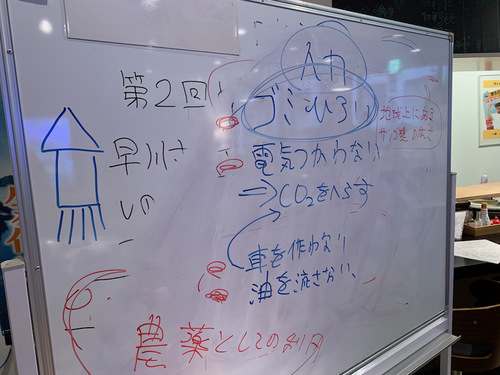 人力
第2回
ゴミひろい
地球上にある
サンゴ礁の
早川
電気つかわない
⇒CO2をへらす
いの
車を作わない
油を流さない、
農薬としての利用